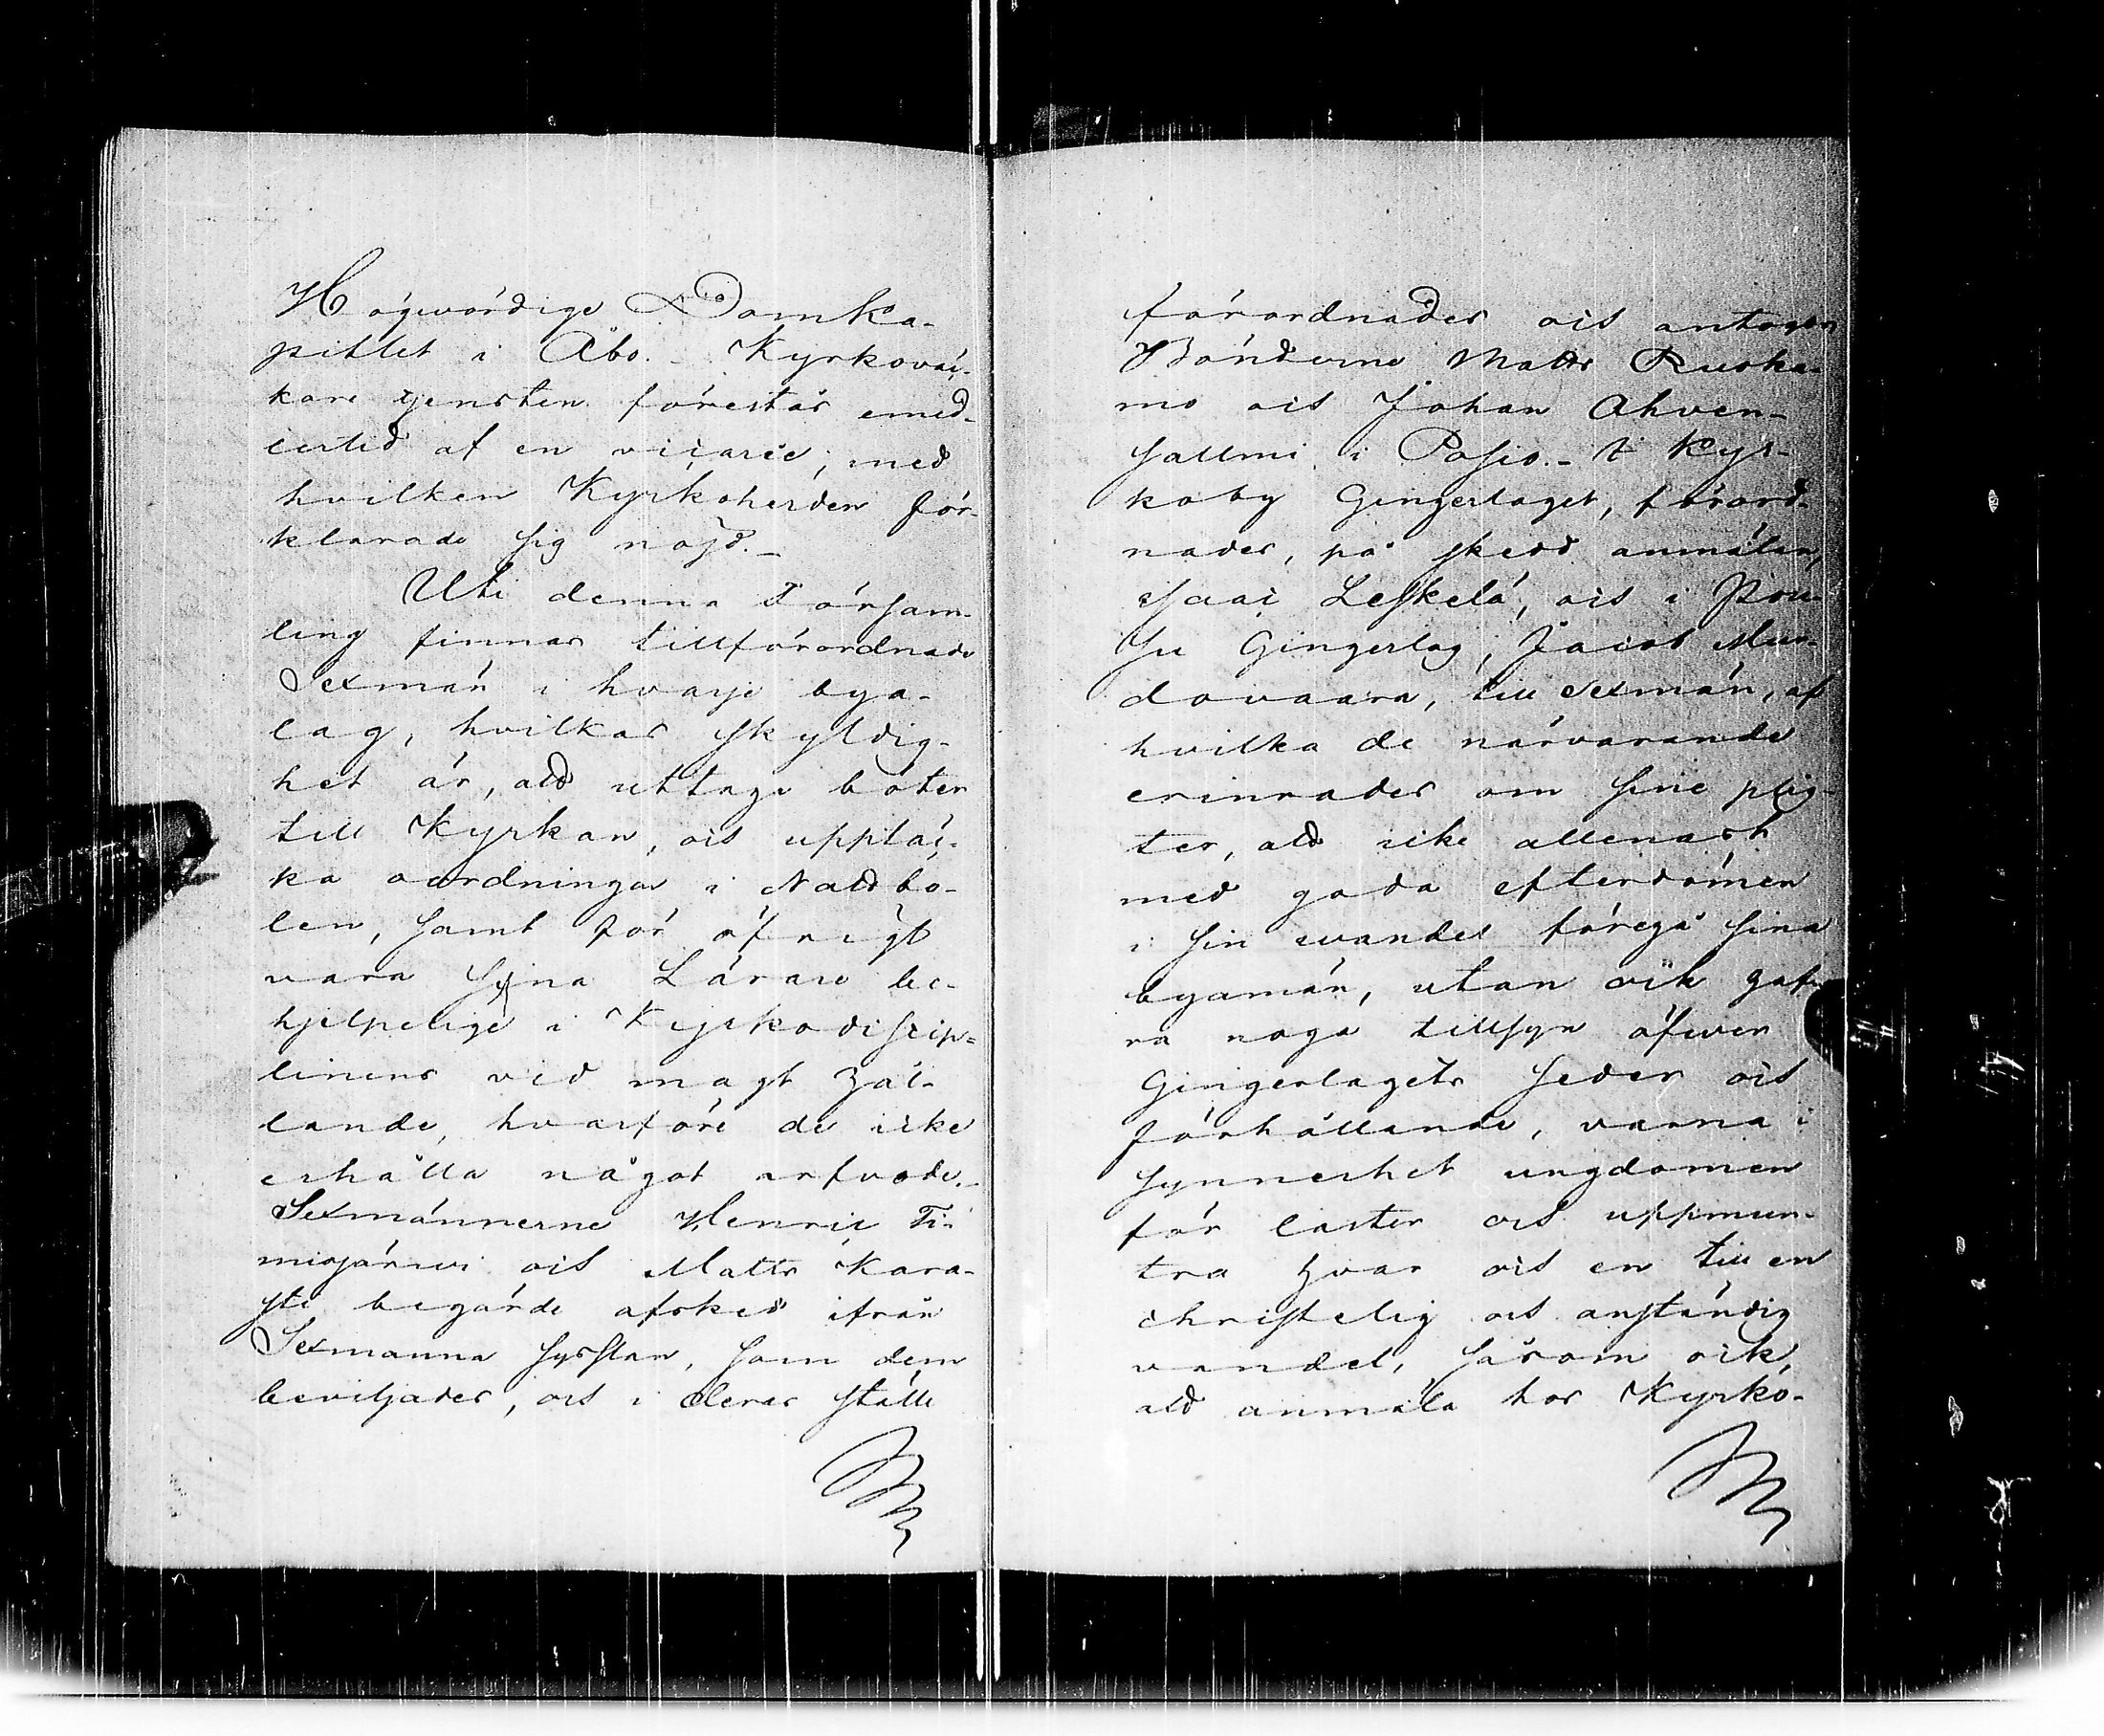 Högwördige Domka-
pitlet i Åbo. - Kyrkoväc-
kare tjensten förestås emed-
lertid af en vicarie, med
hvilken Kyrkoherden för-
klarade sig nöjd. -
Uti denna Försam-
ling finnas tillförordnade
Sexmän i hvarje bya-
lag, hvilkas skyldig-
het är, att uttaga böter
till Kyrkan, och upptäc-
ka oordningar i Nattbö-
len, samt för öfrigt
vara sina Lärare be-
hjelpelige i Kyrkodiscip-
linens vid magt hål-
lande, hvarföre de icke
erhålla något arfvode. -
Sexmännerne Henric Ti-
misjärwi och Matts Kara-
sti begärde afsked ifrån
Sexmanna sysslan, som dem
beviljades, och i deras ställe
förordnades och antogos
Bönderne Matts Ruska-
mo och Johan Ahven-
sallmi i Posio. - I Kyr-
koby Gingerlaget, förord-
nades, på skedd anmälan,
Isaac Leskelä, och i
Gingerlag, Jacob Mur-
dovaara, till Sexmän, af
hvilka de närvarande
erinrades om sine plig-
ter, att icke allenast
med goda efterdömen
i sin wandel föregå sina
byamän, utan ock haf-
va noga tillsyn öfwer
Gingerlagets seder och
förhållande, varna i
synnerhet ungdomen
för laster och uppmun-
tra hvar och en till en
christelig och anständig
vandel, såsom ock,
att anmäla hos Kyrko-